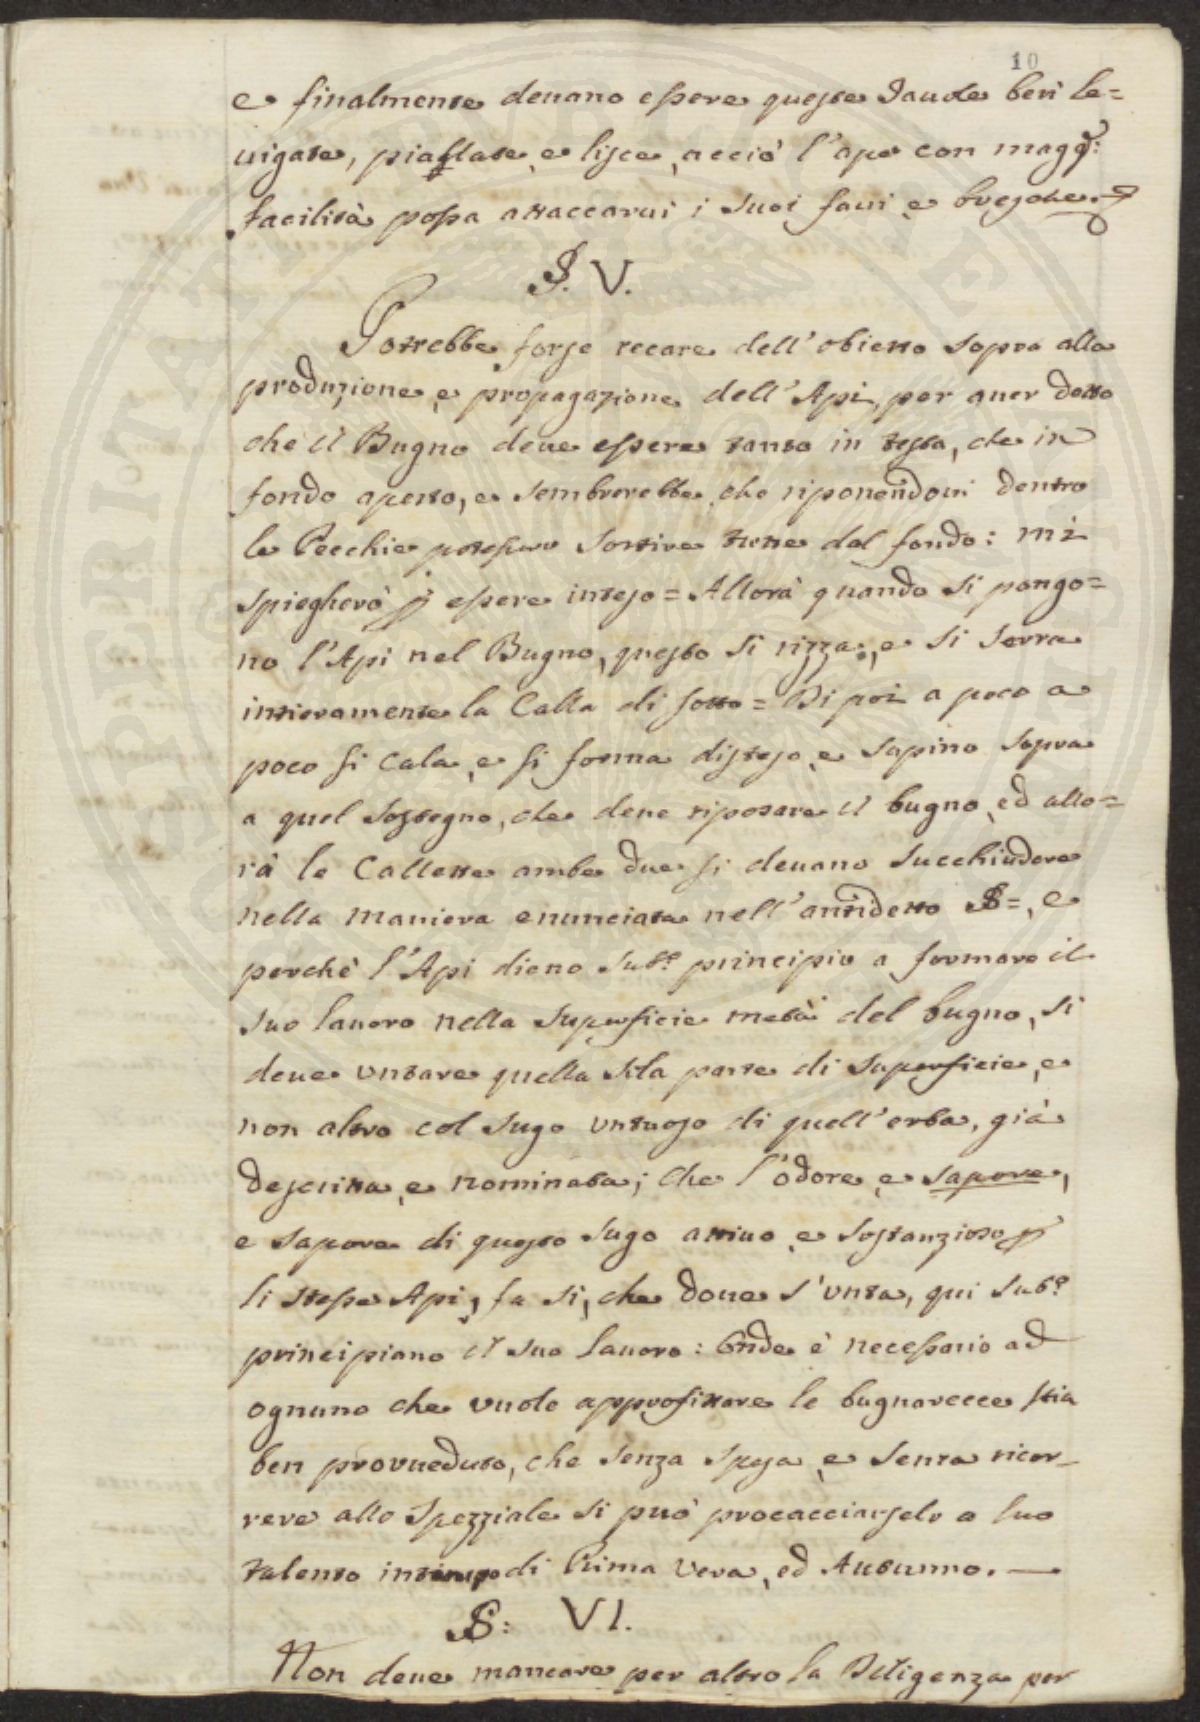 10
e finalmente devano essere queste Tavole ben le=
uigate, piallate, e lisce, acciò l'ape con magg.r
facilità possa attaccarui i suoi faui, e bugole.
§. V.
Potrebbe forse recare dell'obietto sopra alla
produzione, e propagazione dell'Api, per auer detto
che il Bugno deue essere tanto in testa, che in
fondo aperto, e sembrerebbe, che riponendoui dentro
le Pecchie potessero sortire tutte dal fondo: mi
spiegherò p essere inteso = Allorà quando si pongo=
no l'Api nel Bugno, questo si rizza, e si serra
intieramente la Calla di sotto = Di poi a poco a
poco si cala, e si forma disteso, e sapino sopra
a quel sostegno, che deue riposare il bugno, ed allo=
rà le Callette ambe due si deuano succhiudere
nella maniera enunciata nell'antidetto §=, e
perchè l'Api dieno sub.o principio a formare il
suo lauoro nella superficie metà del bugno, si
deue untare quella sola parte di superficie, e
non altro col sugo untuoso di quell'erba, già
descritta, e nominata; che l'odore, e sapore,
e sapore di questo sugo attiuo, e sostanzioso p
li stesse Api, fa si, che doue s'unta, qui sub.o
principiano il suo lauoro: Onde è necessario ad
ognuno che vuole approfittare le bugnarecce stia
ben prouueduto, che senza spesa, e senza ricor=
rere allo Spezziale si può procacciarselo a suo
talento in tempo di Prima Vera, ed Autunno. —
§: VI.
Non deue mancare per altro la Diligenza per